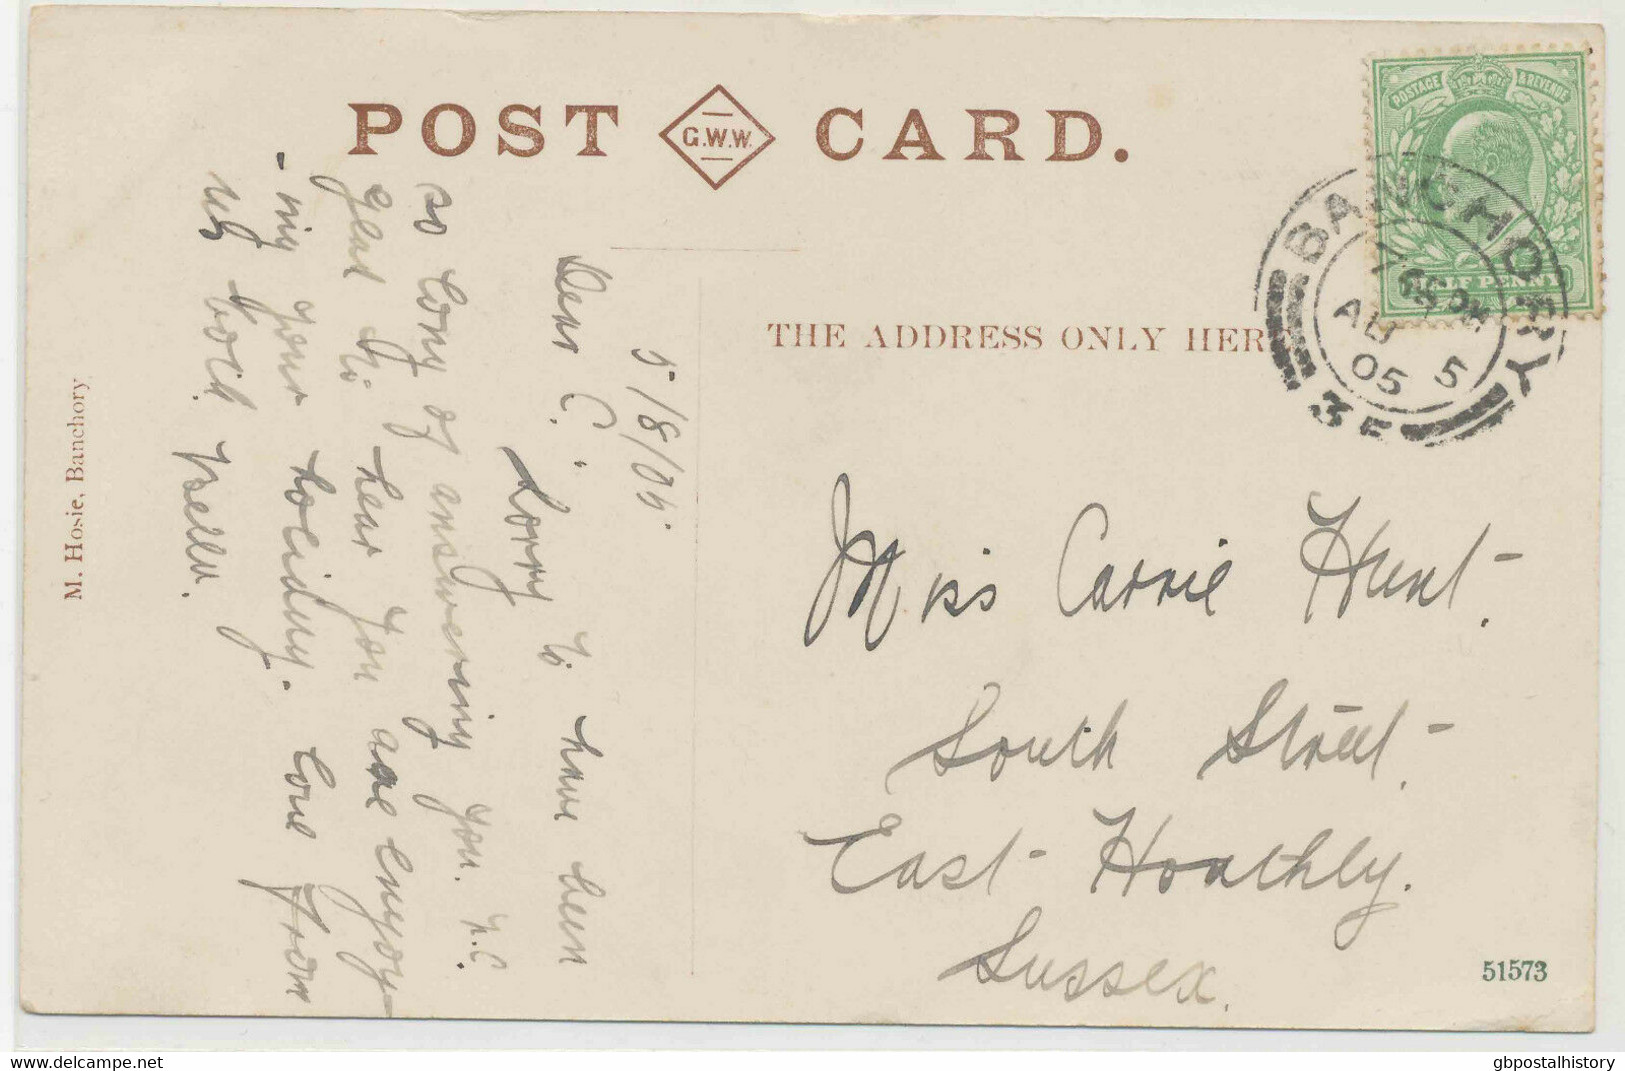 POST G.W.W. CARD.
POSTAGE & REVENUE
HALF PENNY
BANCHORY
AU 5
05
THE ADDRESS ONLY HER
M. Hosie, Banchory
5/8/05
Dear C. Sorry to have been
so long of answering you. N.C.
glad to hear you are enjoy-
-ing your holiday. Love from
us both. Nellie.
Miss Carrie Hunt.
South Street.
East Hoathly.
Sussex.
51573
www.delcampe.net
gbpostalhistory